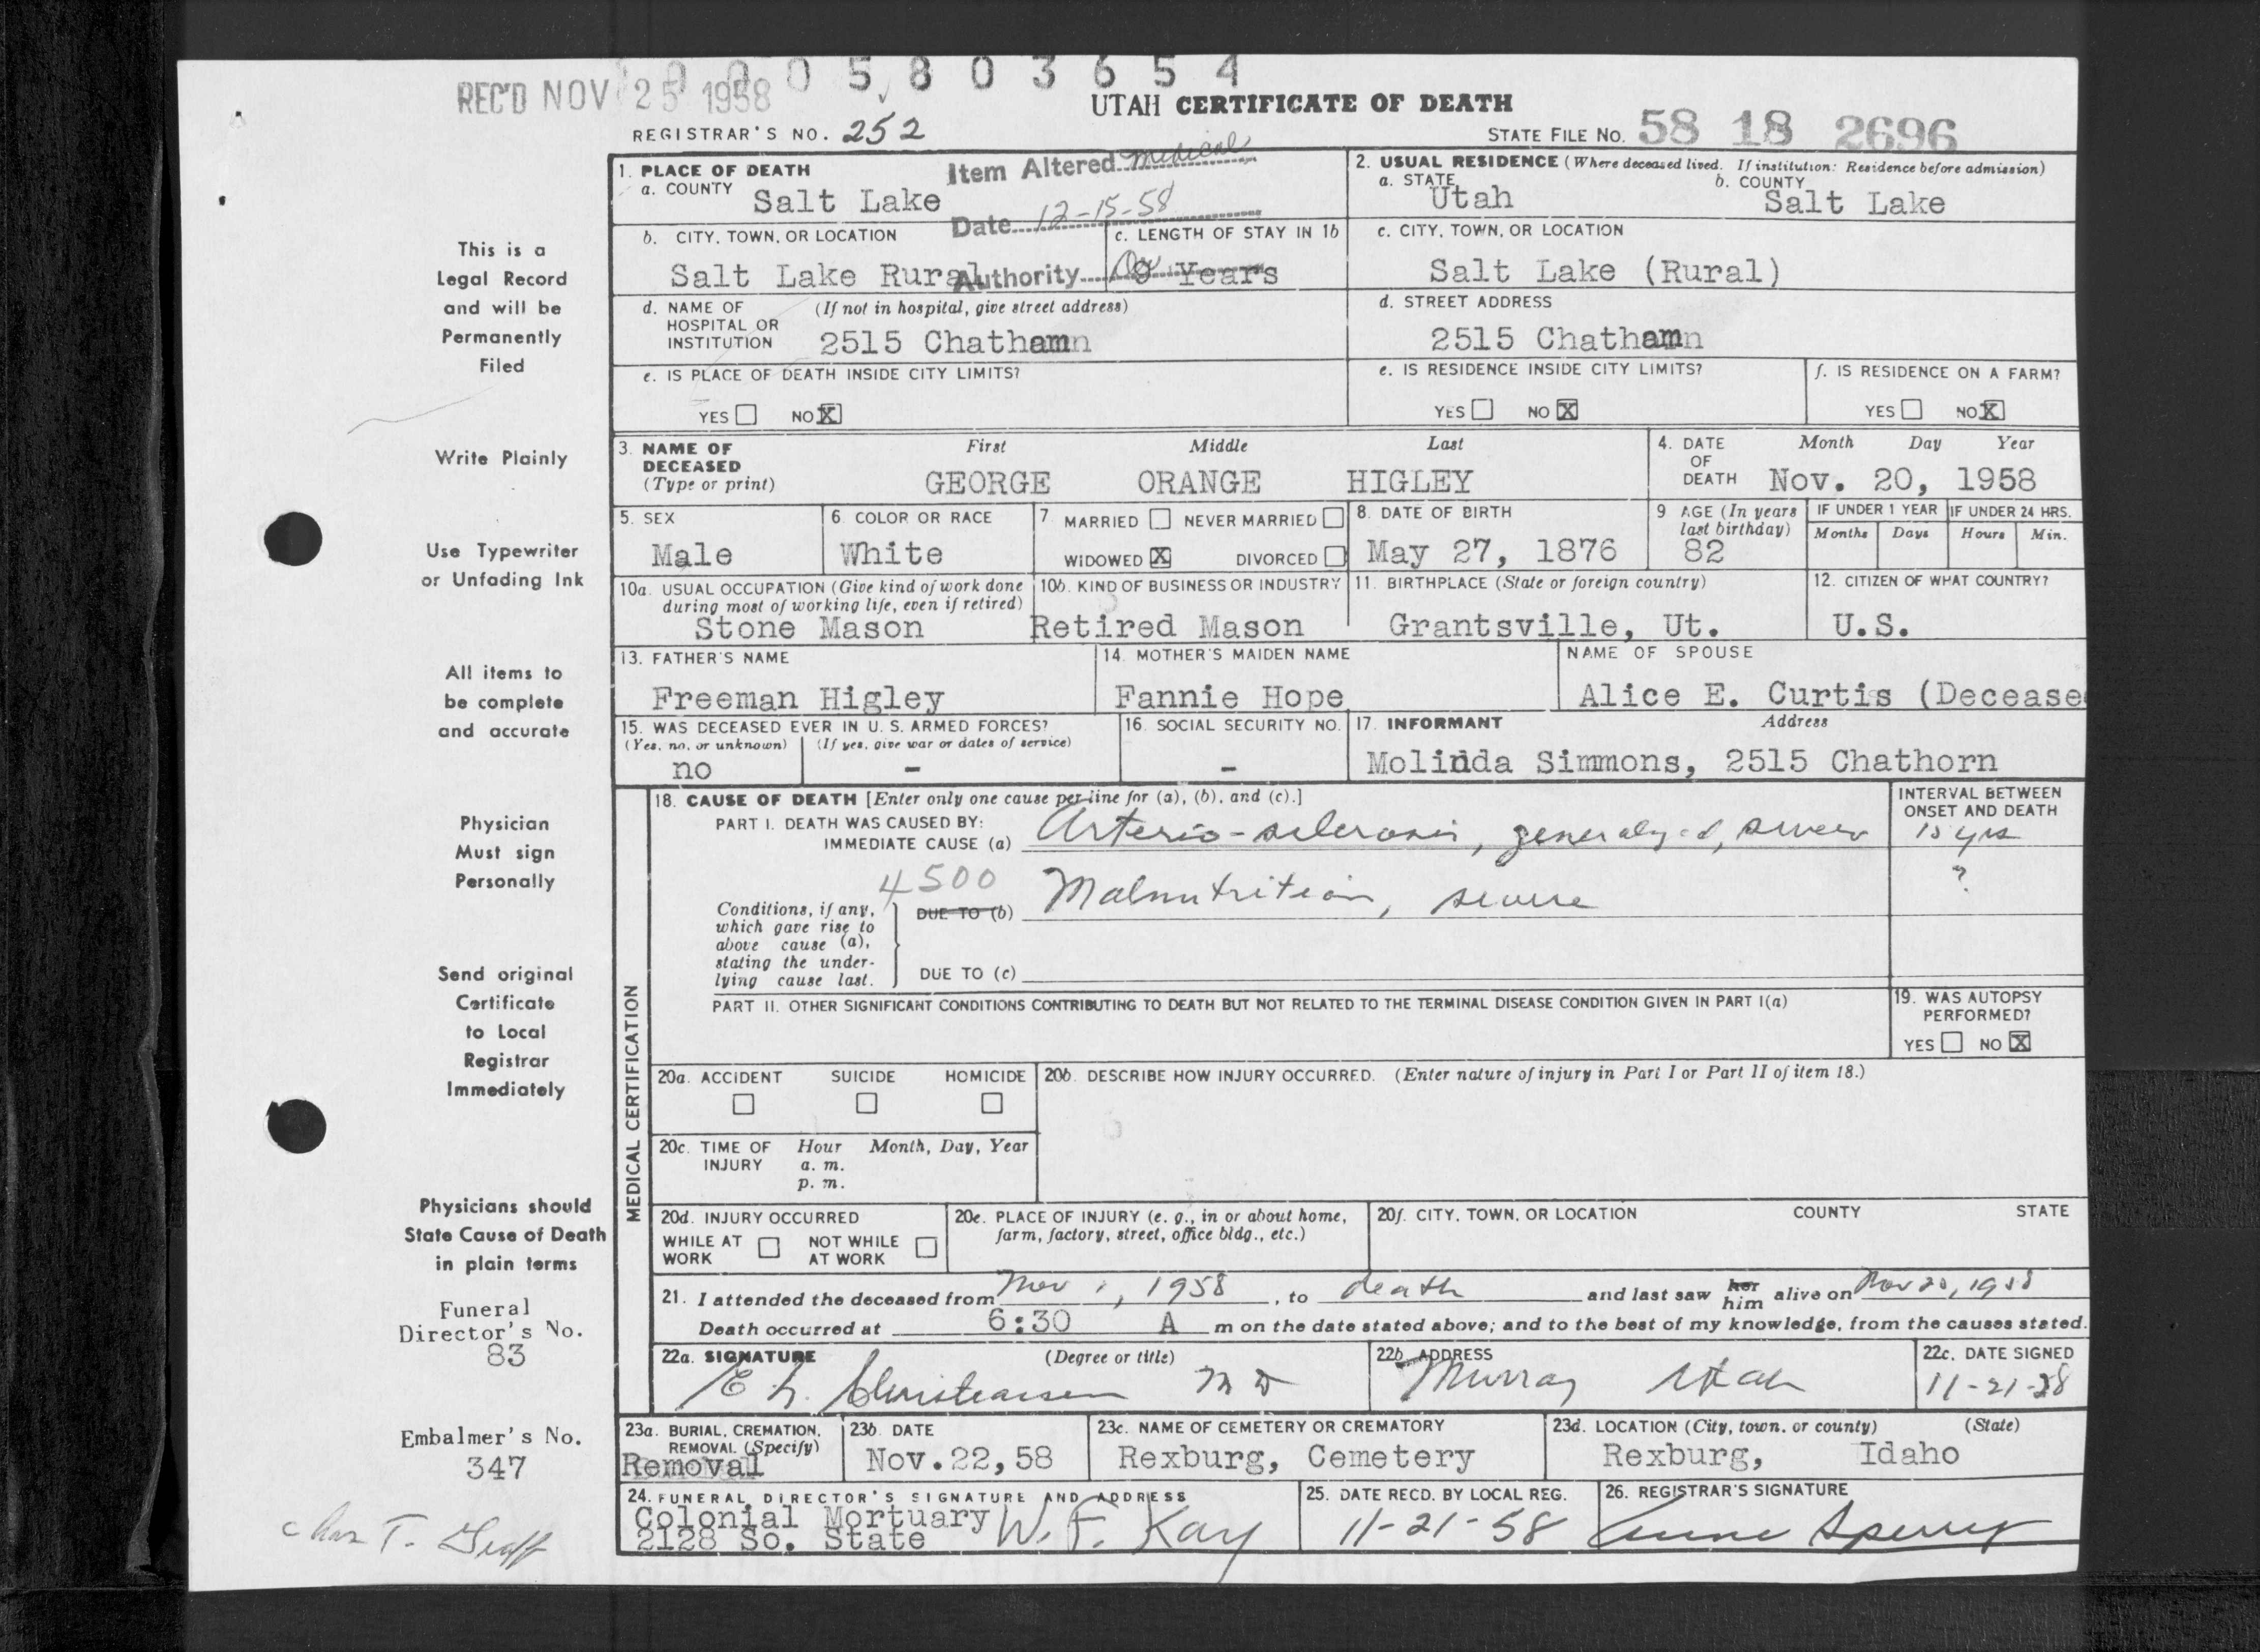 0 0 0 5 8 0 3 6 5 4
REC'D NOV 25 1958
UTAH CERTIFICATE OF DEATH
REGISTRAR'S NO. 252
STATE FILE NO. 58 18 2696
This is a
Legal Record
and will be
Permanently
Filed
Write Plainly
Use Typewriter
or Unfading Ink
All items to
be complete
and accurate
Physician
Must sign
Personally
Send original
Certificate
to Local
Registrar
Immediately
Physicians should
State Cause of Death
in plain terms
Funeral
Director's No.
83
Embalmer's No.
347
Item Altered medical
Date 12-15-58
Authority
1. PLACE OF DEATH
a. COUNTY Salt Lake
2. USUAL RESIDENCE (Where deceased lived. If institution: Residence before admission)
a. STATE Utah b. COUNTY Salt Lake
b. CITY, TOWN, OR LOCATION Salt Lake Rural
c. LENGTH OF STAY IN 1b 9 Years
c. CITY, TOWN, OR LOCATION Salt Lake (Rural)
d. NAME OF (If not in hospital, give street address)
HOSPITAL OR
INSTITUTION 2515 Chatham
d. STREET ADDRESS 2515 Chatham
e. IS PLACE OF DEATH INSIDE CITY LIMITS?
YES NO X
e. IS RESIDENCE INSIDE CITY LIMITS?
YES NO X
f. IS RESIDENCE ON A FARM?
YES NO X
3. NAME OF DECEASED (Type or print) First Middle Last
GEORGE ORANGE HIGLEY
4. DATE OF DEATH Month Day Year
Nov. 20, 1958
5. SEX Male
6. COLOR OR RACE White
7. MARRIED NEVER MARRIED
WIDOWED X DIVORCED
8. DATE OF BIRTH May 27, 1876
9 AGE (In years last birthday) 82
IF UNDER 1 YEAR Months Days
IF UNDER 24 HRS. Hours Min.
10a. USUAL OCCUPATION (Give kind of work done during most of working life, even if retired)
Stone Mason
10b. KIND OF BUSINESS OR INDUSTRY
Retired Mason
11. BIRTHPLACE (State or foreign country)
Grantsville, Ut.
12. CITIZEN OF WHAT COUNTRY?
U.S.
13. FATHER'S NAME
Freeman Higley
14. MOTHER'S MAIDEN NAME
Fannie Hope
NAME OF SPOUSE
Alice E. Curtis (Decease
15. WAS DECEASED EVER IN U. S. ARMED FORCES?
(Yes, no, or unknown) (If yes, give war or dates of service)
no -
16. SOCIAL SECURITY NO.
-
17. INFORMANT Address
Molinda Simmons, 2515 Chathorn
MEDICAL CERTIFICATION
18. CAUSE OF DEATH [Enter only one cause per line for (a), (b), and (c).]
PART I. DEATH WAS CAUSED BY:
IMMEDIATE CAUSE (a) Arterio-sclerosis, generalyzed, severe
INTERVAL BETWEEN ONSET AND DEATH
15 yrs
?
4500
Conditions, if any, which gave rise to above cause (a), stating the underlying cause last.
DUE TO (b) Malnutrition, severe
DUE TO (c)
PART II. OTHER SIGNIFICANT CONDITIONS CONTRIBUTING TO DEATH BUT NOT RELATED TO THE TERMINAL DISEASE CONDITION GIVEN IN PART I(a)
19. WAS AUTOPSY PERFORMED?
YES NO X
20a. ACCIDENT SUICIDE HOMICIDE
20b. DESCRIBE HOW INJURY OCCURRED. (Enter nature of injury in Part I or Part II of item 18.)
20c. TIME OF INJURY Hour Month, Day, Year
a. m.
p. m.
20d. INJURY OCCURRED
WHILE AT WORK NOT WHILE AT WORK
20e. PLACE OF INJURY (e. g., in or about home, farm, factory, street, office bldg., etc.)
20f. CITY, TOWN, OR LOCATION COUNTY STATE
21. I attended the deceased from Nov 1, 1958, to death and last saw her him alive on Nov 20, 1958
Death occurred at 6:30 A m on the date stated above; and to the best of my knowledge, from the causes stated.
22a. SIGNATURE (Degree or title)
E L. Christensen MD
22b. ADDRESS
Murray Utah
22c. DATE SIGNED
11-21-58
23a. BURIAL, CREMATION, REMOVAL (Specify)
Removal
23b. DATE
Nov.22,58
23c. NAME OF CEMETERY OR CREMATORY
Rexburg, Cemetery
23d. LOCATION (City, town, or county) (State)
Rexburg, Idaho
24. FUNERAL DIRECTOR'S SIGNATURE AND ADDRESS
Colonial Mortuary W. F. Kay
2128 So. State
25. DATE RECD. BY LOCAL REG.
11-21-58
26. REGISTRAR'S SIGNATURE
Anne Sperry
Chas T. Graff